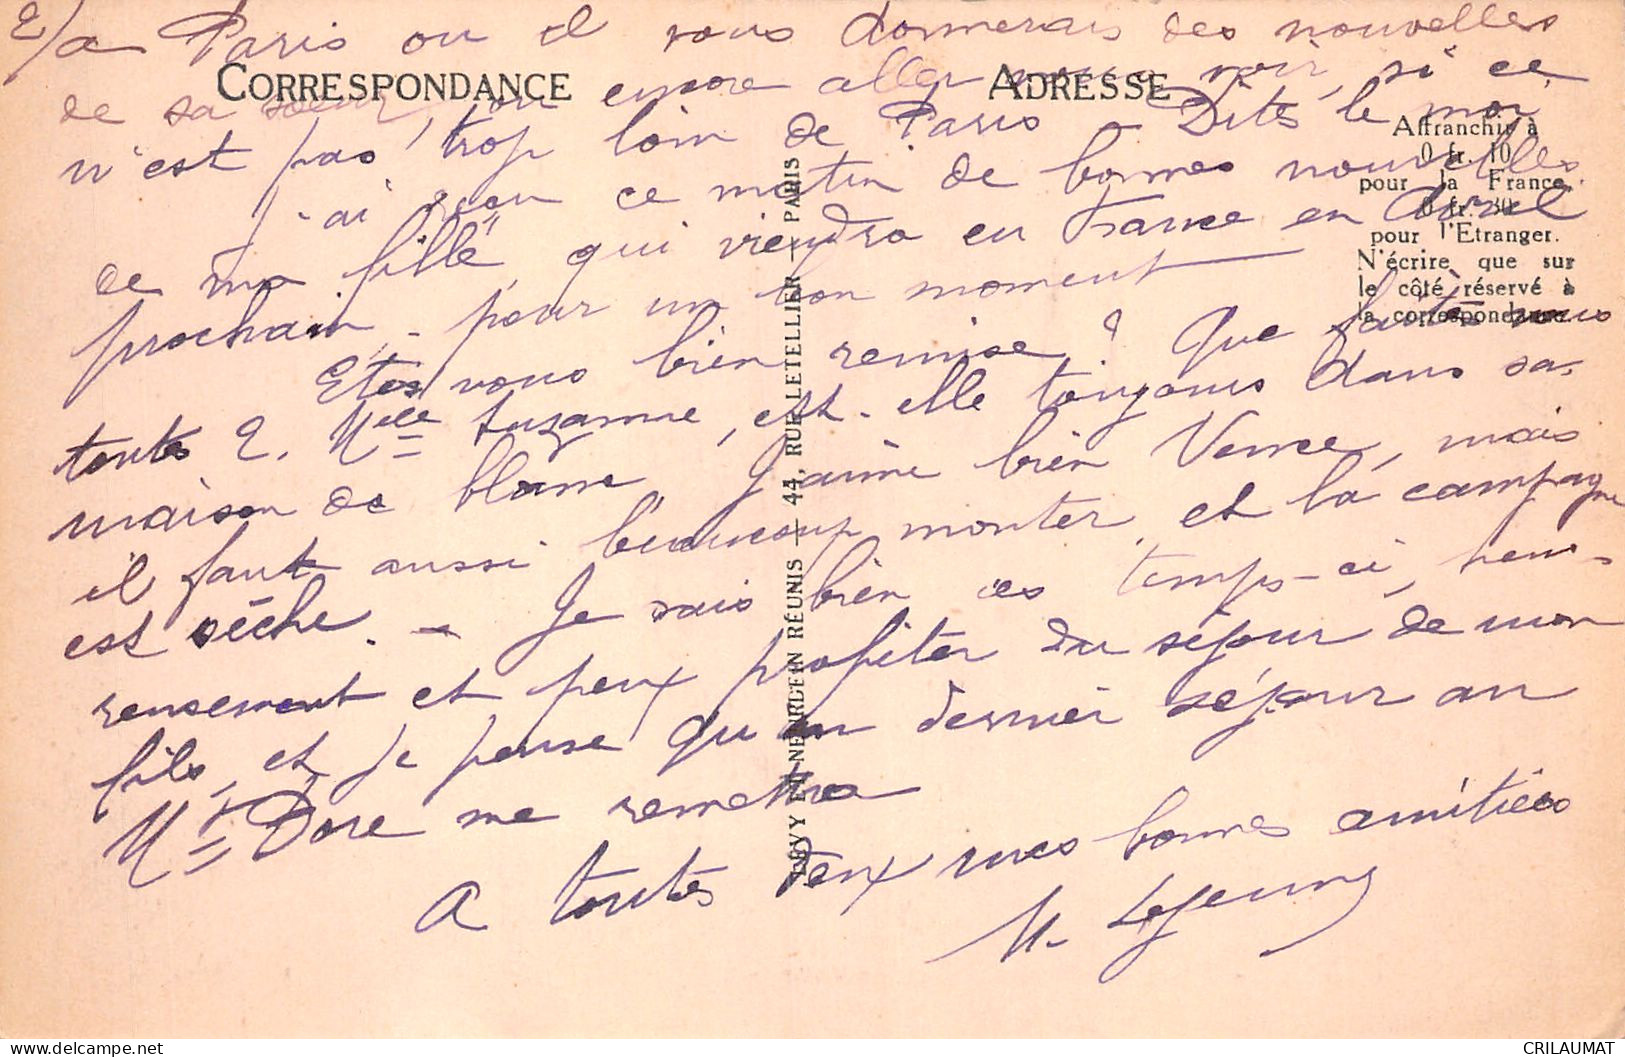 2/ a Paris ou il vous donnerais des nouvelles
de sa soeur, ou encore aller vous voir, si ce
n'est pas trop loin de Paris - Dites le moi
J'ai reçu ce matin de bonnes nouvelles
de ma fille, qui viendra en France en Avril
prochain - pour un bon moment
Etes vous bien remise ? Que faites vous
toutes 2. Melle Suzanne, est-elle toujours dans sa
maison de blanc J'aime bien Vence, mais
il faut aussi beaucoup monter, et la campagne
est sèche. - Je vais bien ces temps-ci, heu-
reusement et peux profiter du séjour de mon
fils, et je pense qu'un dernier séjour au
Mt Dore me remettra
A toutes deux mes bonnes amitiées
M. Lejeune
CORRESPONDANCE
ADRESSE
Affranchir à
0 fr. 10
pour la France
0 fr. 30
pour l'Etranger.
N'écrire que sur
le côté réservé à
la correspondance.
LÉVY ET NEURDEIN RÉUNIS — 44, RUE LETELLIER — PARIS
CRILAUMAT